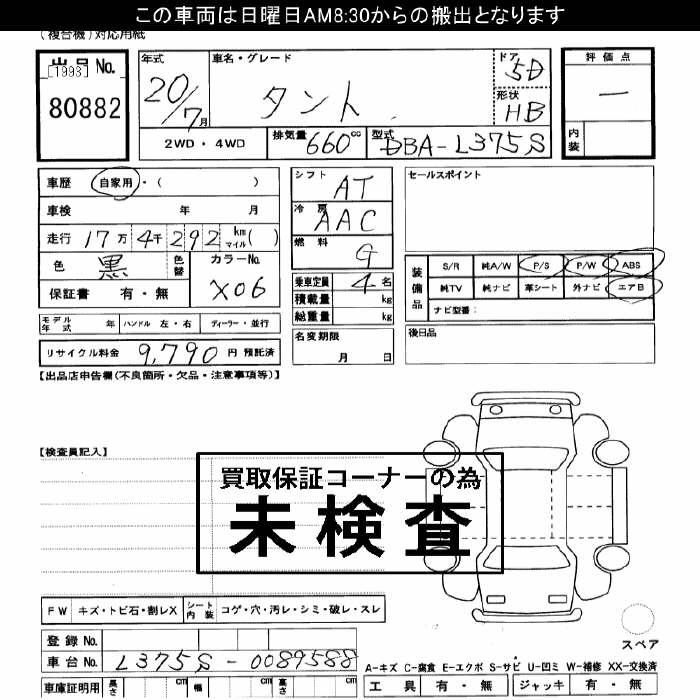 この車両は日曜日AM8:30からの搬出となります
(複合機)対応用紙
出品No. [1993] 80882
年式 20/7月
車名・グレード タント
ドア 5D
形状 HB
評価点 一
内装
2WD・4WD 排気量 660cc 型式 DBA-L375S
車歴 自家用・( )
車検 年 月
走行 17万 4千 292 km マイル( )
色 黒 色替 カラーNo. X06
保証書 有・無
シフト AT
冷房 AAC
燃料 G
乗車定員 4名
積載量 kg
総重量 kg
セールスポイント
装備品 S/R 純A/W P/S P/W ABS
純TV 純ナビ 革シート 外ナビ エアB
ナビ型番:
モデル年式 年 ハンドル 左・右 ディーラー・並行
名変期限 月 日
後日品
リサイクル料金 9,790 円 預託済
【出品店申告欄(不良箇所・欠品・注意事項等)】
【検査員記入】
買取保証コーナーの為
未検査
FW キズ・トビ石・割レX シート内装 コゲ・穴・汚レ・シミ・破レ・スレ
スペア
登録No.
車台No. L375S-0089588
A-キズ C-腐食 E-エクボ S-サビ U-凹ミ W-補修 XX-交換済
車庫証明用 長さ cm 幅 cm 高さ cm
工具 有・無 ジャッキ 有・無